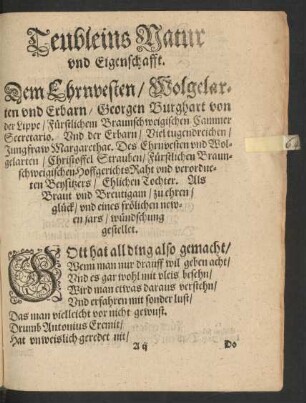 Teubleins Natur
vnd Eigenschafft.
Dem Ehrnvesten / Wolgelar-
ten vnd Erbarn / Georgen Burghart von
der Lippe / Fürstlichem Braunschweigischen Cammer
Secretario. Vnd der Erbarn / Vieltugendreichen /
Jungfraw Margarethae. Des Ehrnvesten vnd Wol-
gelarten / Christoffel Strauben / Fürstlichen Braun-
schweigischen Hoffgerichts Raht vnd verordne-
ten Beysitzers / Ehlichen Tochter. Als
Braut vnd Breutigam / zu ehren /
glück / vnd eines frölichen new-
en jars / wündschung
gestellet.
GOtt hat all ding also gemacht /
Wenn man nur drauff wil geben acht /
Vnd es gar wohl mit vleis besehn /
Wird man etwas daraus verstehn /
Vnd erfahren mit sonder lust /
Das man vielleicht vor nicht gewust.
Drumb Antonius Eremit /
Hat vnweislich geredet nit /
A ij
Do